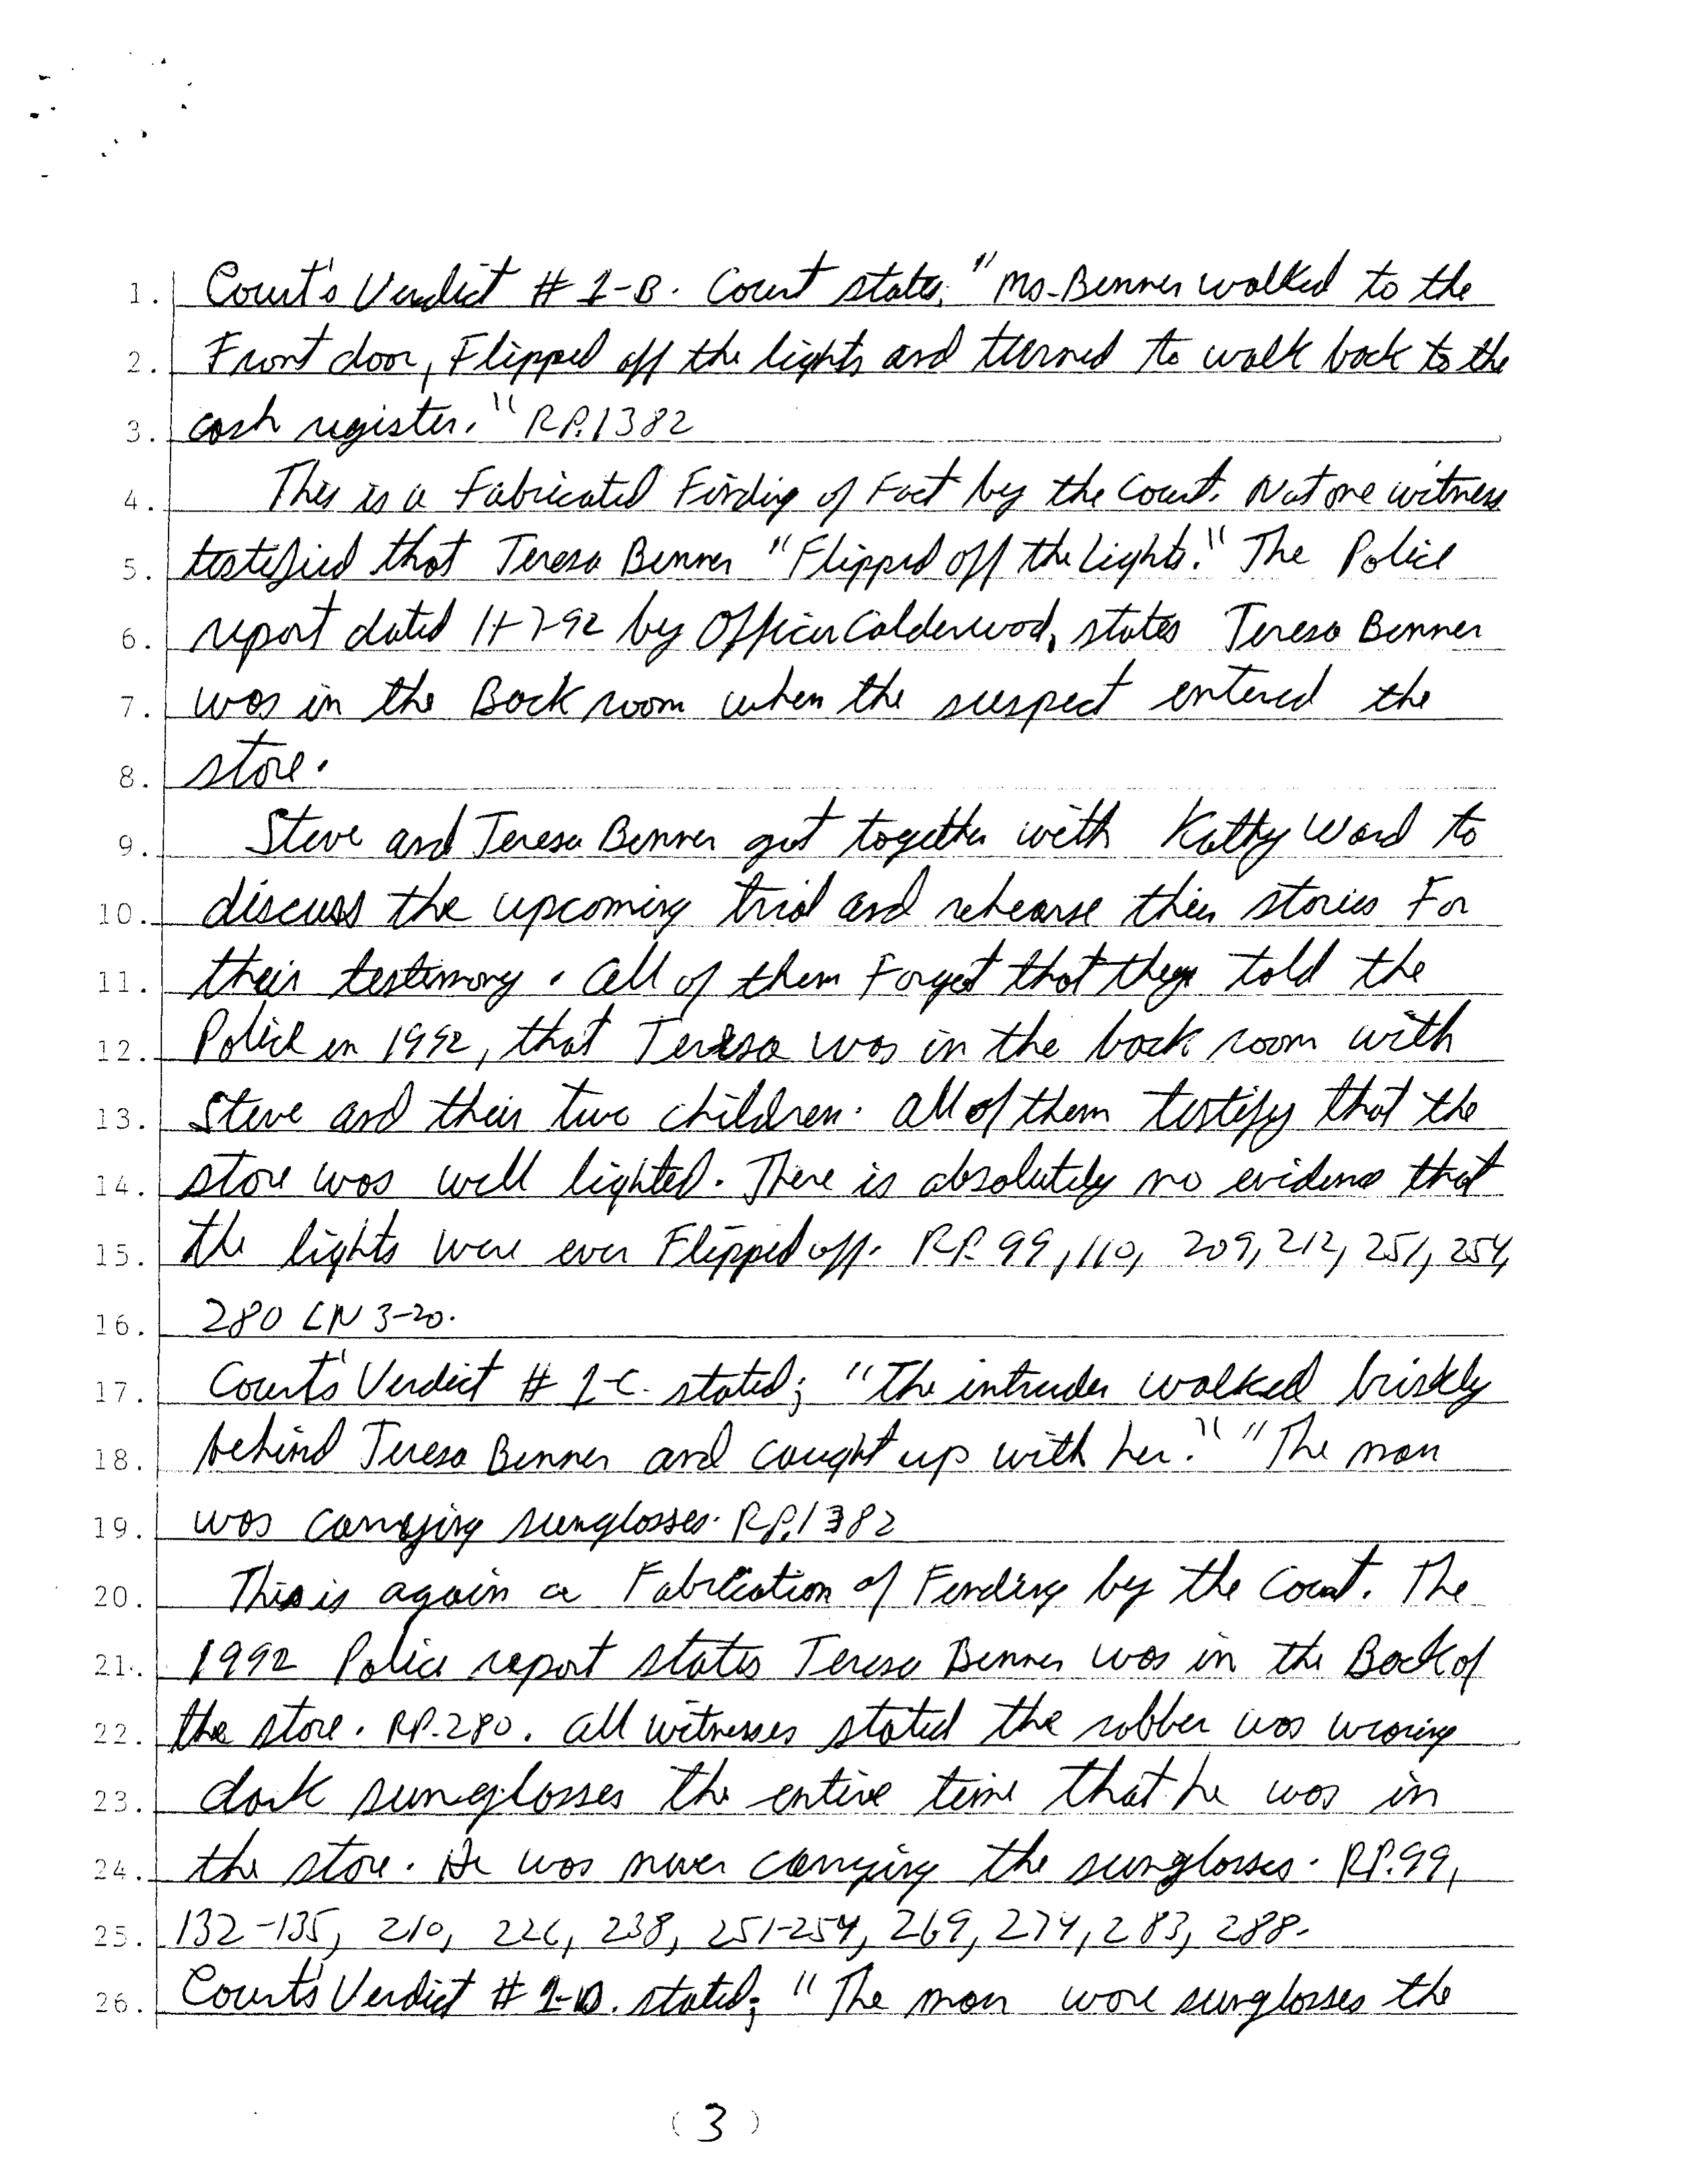 1. Court's Verdict # 1-B. Court states, "Ms. Benner walked to the
2. Front door, Flipped off the lights and turned to walk back to the
3. cash register." RP.1382
4. This is a Fabricated Finding of Fact by the Court. Not one witness
5. testified that Teresa Benner "Flipped off the Lights." The Police
6. report dated 11-7-92 by Officer Calderwood, states Teresa Benner
7. was in the Back room when the suspect entered the
8. store.
9. Steve and Teresa Benner got together with Kathy Ward to
10. discuss the upcoming trial and rehearse their stories For
11. their testimony. All of them Forget that they told the
12. Police in 1992, that Teresa was in the back room with
13. Steve and their two children. All of them testify that the
14. store was well lighted. There is absolutely no evidence that
15. the lights were ever Flipped off. RP. 99, 110, 209, 212, 251, 254,
16. 280 LN 3-20.
17. Court's Verdict # 1-C. stated; "The intruder walked briskly
18. behind Teresa Benner and caught up with her." "The man
19. was carrying sunglasses. RP.1382
20. This is again a Fabrication of Finding by the Court. The
21. 1992 Police report states Teresa Benner was in the Back of
22. the store. RP.280. All witnesses stated the robber was wearing
23. dark sunglasses the entire time that he was in
24. the store. He was never carrying the sunglasses. RP.99,
25. 132-135, 210, 226, 238, 251-254, 269, 274, 283, 288.
26. Court's Verdict # 1-D. stated; "The man wore sunglasses the
(3)